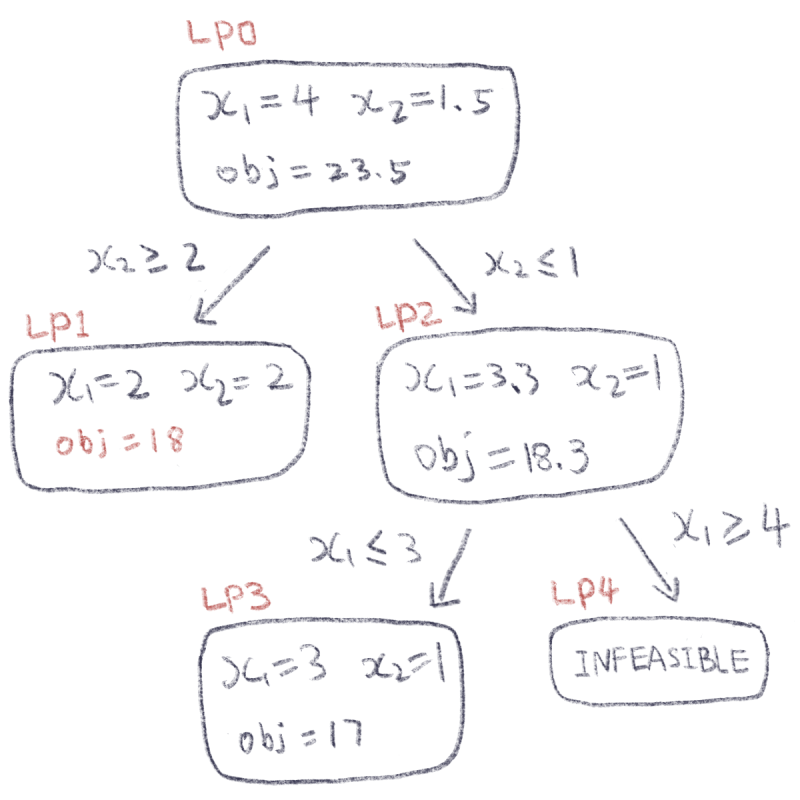 LP0
x₁=4 x₂=1.5
obj=23.5
x₂≥2
x₂≤1
LP1
x₁=2 x₂=2
obj=18
LP2
x₁=3.3 x₂=1
obj=18.3
x₁≤3
x₁≥4
LP3
x₁=3 x₂=1
obj=17
LP4
INFEASIBLE